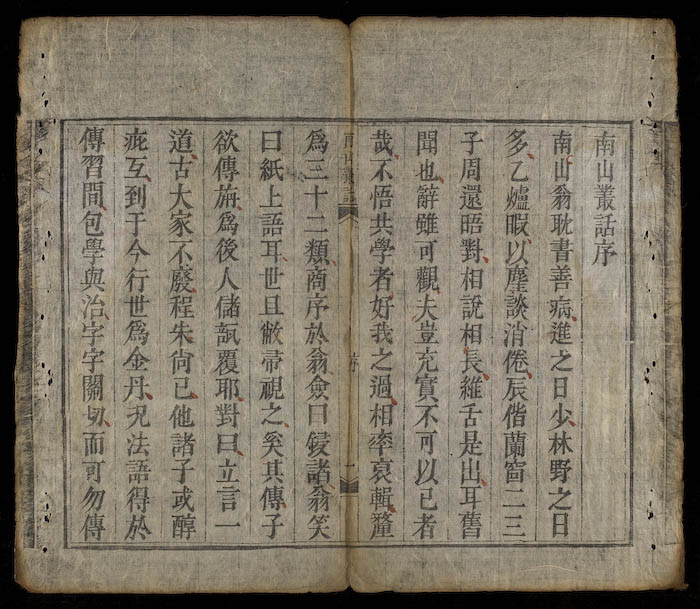 南山叢話序
南山翁耽書善病進之日少林野之日
多乙爐暇以麈談消倦辰偕蘭窗二三
子周還晤對相說相長維舌是出耳舊
聞也辭雖可觀夫豈充實不可以已者
哉不悟共學者好我之過相率裒輯釐
南山叢話
序
一
爲三十二類商序於翁僉曰鋟諸翁笑
曰紙上語耳世且敝帚視之奚其傳子
欲傳旃爲後人儲瓿覆耶對曰立言一
道古大家不廢程朱尙已他諸子或醇
疵互到于今行世爲金丹况法語得於
傳習間包學與治字字關切而可勿傳